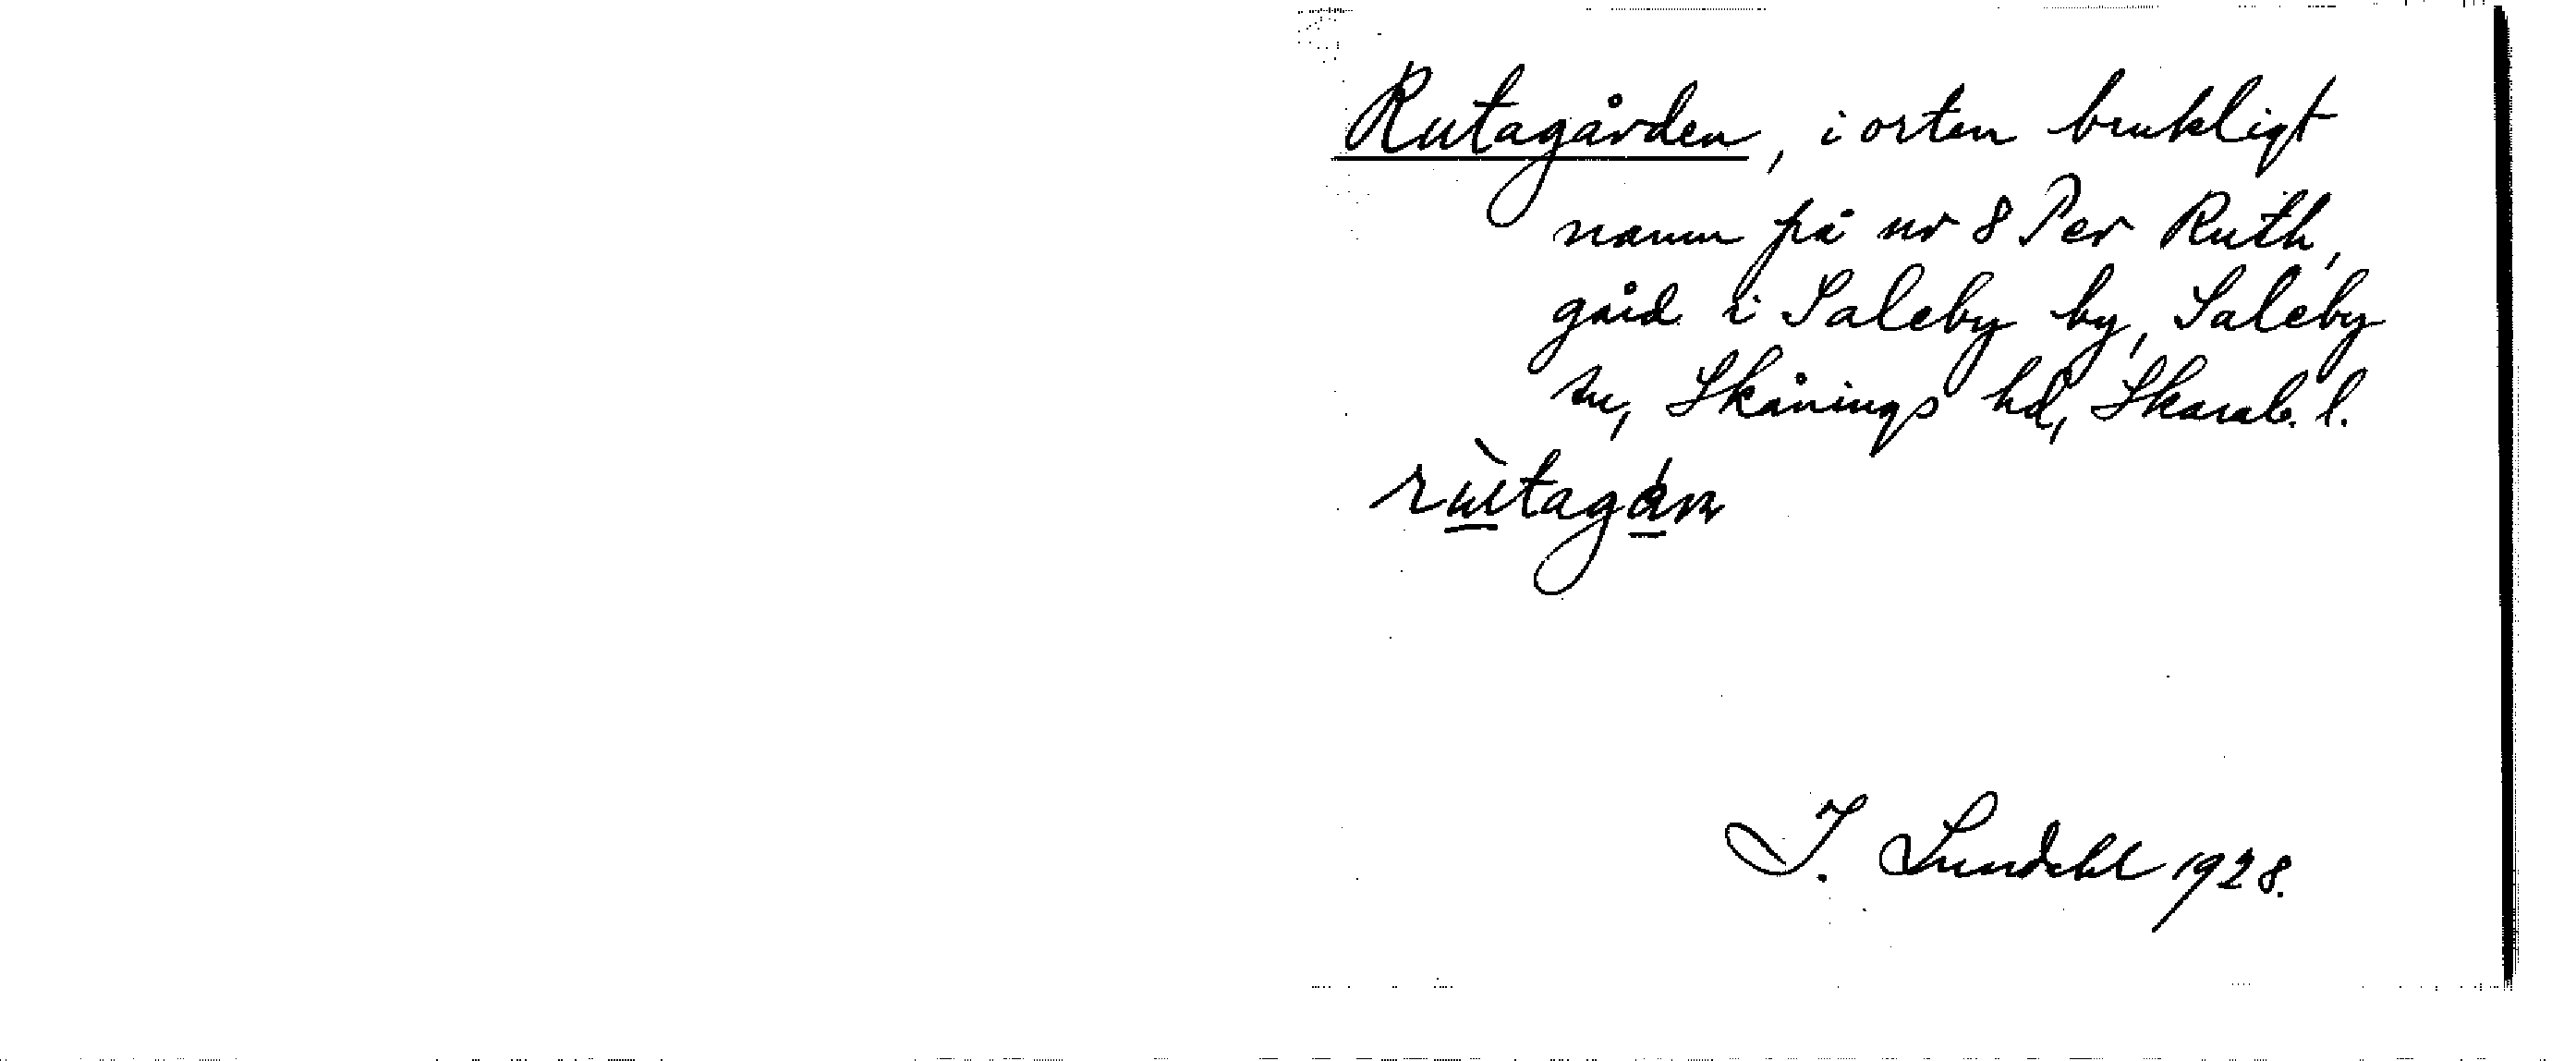 Rutagården, i orten brukligt
namn på nr 8 Per Ruth,
gård i Saleby by, Saleby
sn, Skånings hd, Skarab. l.
rùtagá̠n
I. Lundahl 1928.